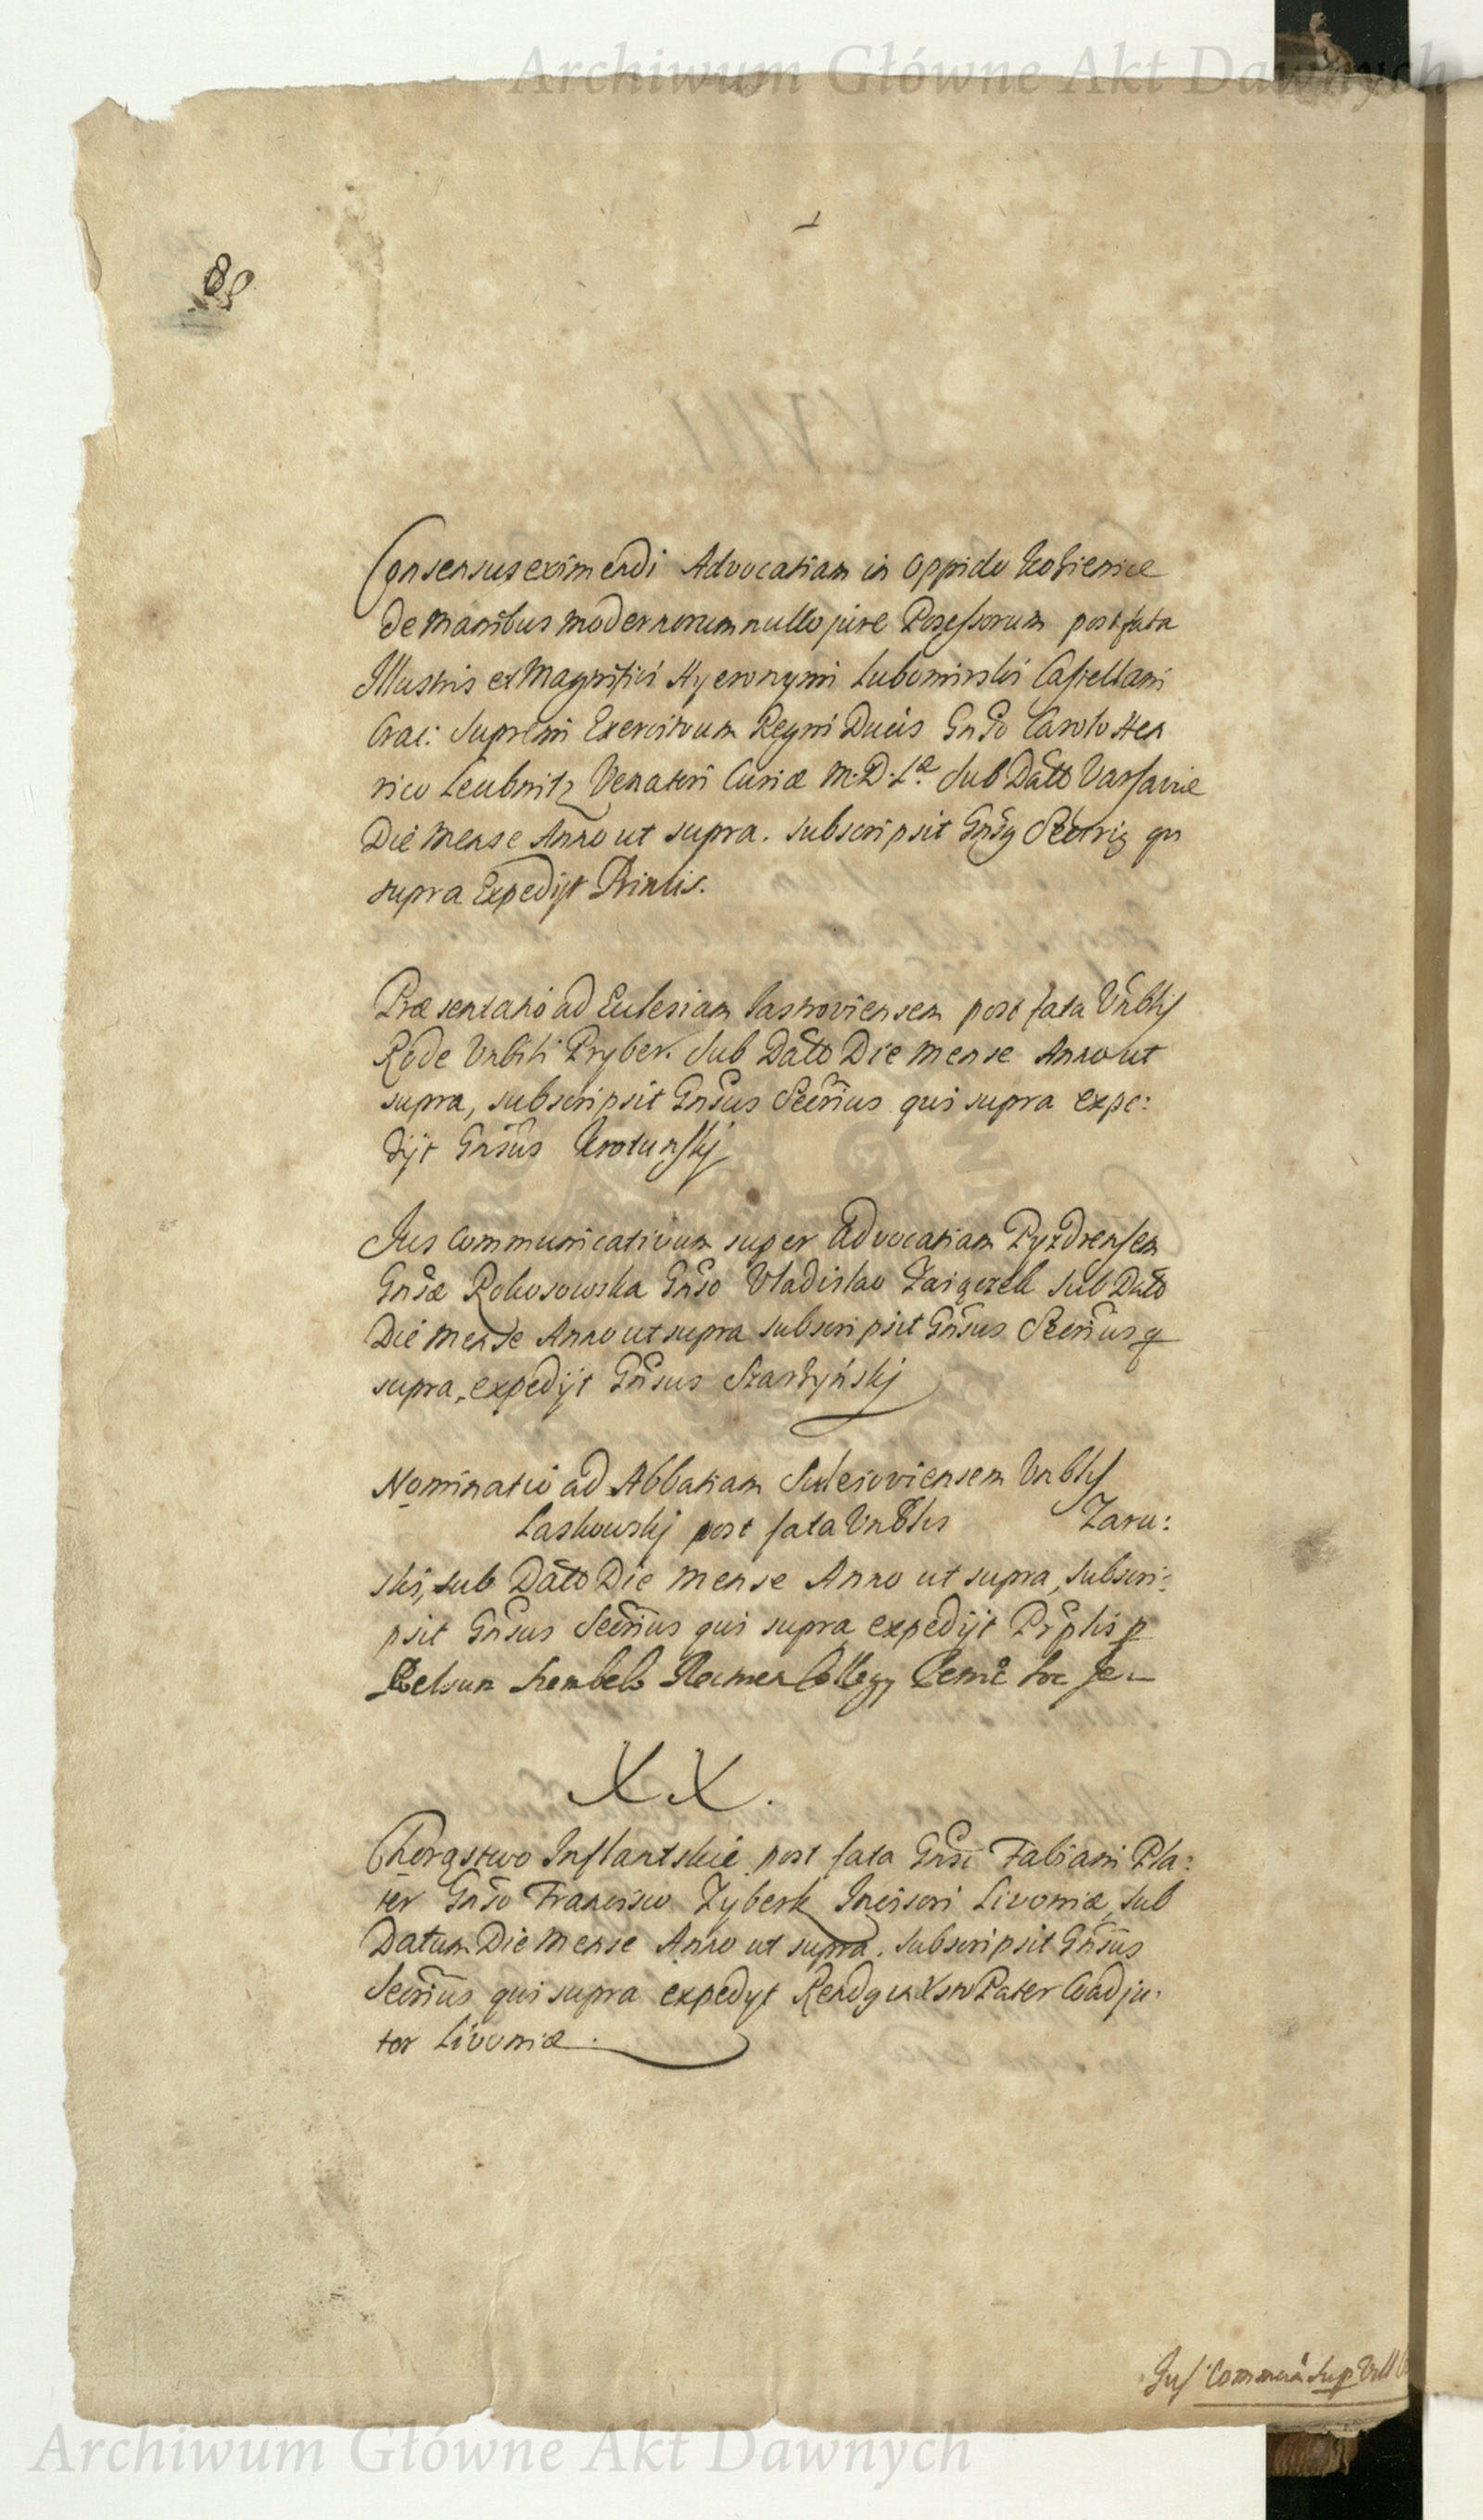 Archiwum Główne Akt Dawnych
1
88
Consensus eximendi Advocatiam in oppido Kozienice
de manibus modernorum nullo jure Possessorum post fata
Illustris et Magnifici Hyeronymi Lubomirski Castellani
Crac: Supremi Exercituum Regni Ducis Gnso Carolo Hen
rico Leubnitz Venatori Curiæ M.D.L.æ Sub Datto Varsaviæ
Die Mense Anno ut supra. subscripsit Gnsus qui
supra Expedijt
Præsentatio ad Eclesiam Jastroviensem post fata Vnblis
Rode Vnbili Pryber. Sub Datto Die Mense Anno ut
supra, subscripsit Gnsus Secrius qui supra expe:
dijt Gnsus Krotunskj
Jus Communicativum super Advocatiam Pyzdrensem
Gnsæ Rokosowska Gnso Vladislao Zaigczek Sub Datto
Die Mense Anno ut supra subscripsit Gnsus Secrius q
supra, expedijt Gnsus Szarzyńskj
Nominatio ad Abbatiam Sulejoviensem Vnblis
Laskowskj post fata Vnblis Zaru:
ski, sub Datto Die Mense Anno ut supra, subscri:
psit Gnsus Secrius qui supra expedijt
XX.
Chorąstwo Inflantskie post fata Gnsi Fabiani Pla:
ter Gnso Francisco Zyberk Incisori Livoniæ, sub
Datum Die Mense Anno ut supra. subscripsit Gnsus
Secrius qui supra expedyt Plater Coadju:
tor Livoniæ.
Jus Sup
Archiwum Główne Akt Dawnych